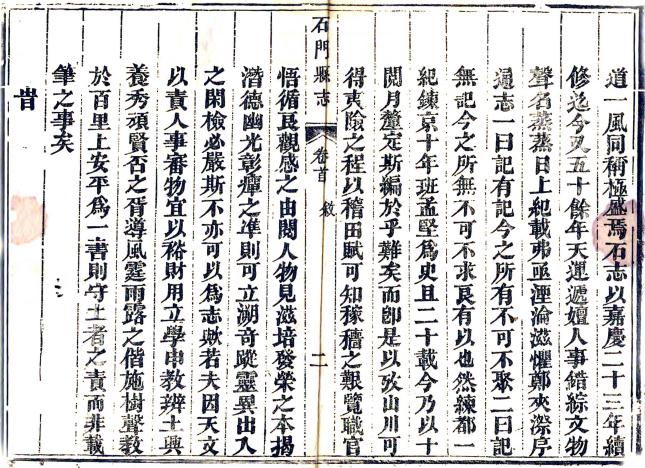 道一風同稱極盛焉石志以嘉慶二十三年續
修迄今又五十餘年天運遞嬗人事錯綜文物
聲名蒸蒸日上紀載弗亟湮淪滋懼鄭夾漈序
通志一曰記有記今之所有不可不聚二曰記
無記今之所無不可不求良有以也然練都一
紀鍊京十年班孟堅爲史且二十載今乃以十
閱月釐定斯編於乎難矣而卽是以攷山川可
得夷險之程以稽田賦可知稼穡之艱覽職官
石門縣志
卷首 敘
二
悟循良觀感之由閱人物見滋培發榮之本揭
潛德幽光彰癉之準則可立溯奇蹤靈異出入
之閑檢必嚴斯不亦可以爲志歟若夫因天文
以責人事審物宜以裕財用立學申教辨土興
養秀頑賢否之胥導風霆雨露之偕施樹聲教
於百里上安平爲一書則守土者之責而非載
筆之事矣
旹